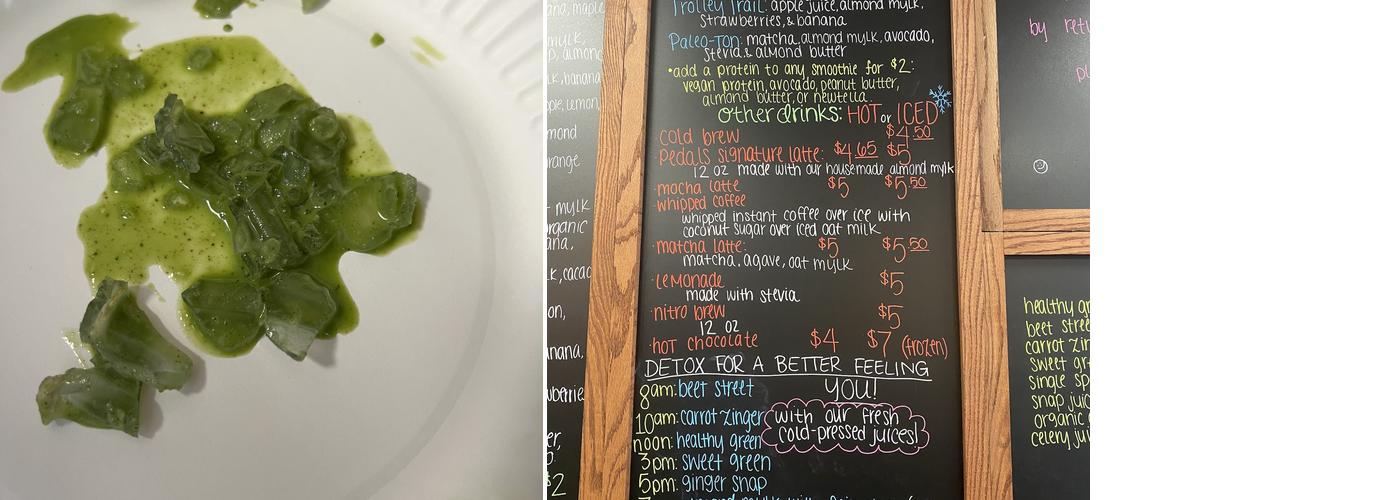 ana, maple
mylk,
p, almond
lk, banana
ple, lemon,
mond
range
mylk
organic
ana,
k, cacao
on,
anana,
wberries
er,
$2
Trolley Trail: apple juice, almond mylk,
strawberries, & banana
Paleo-Ton: matcha, almond mylk, avocado,
stevia & almond butter
•add a protein to any smoothie for $2:
vegan protein, avocado, peanut butter,
almond butter, or newtella.
other drinks: HOT or ICED
cold brew $4.50
pedals signature latte: $4.65 $5
12 oz made with our housemade almond mylk
·mocha latte $5 $5.50
·whipped coffee
whipped instant coffee over ice with
coconut sugar over iced oat milk
·matcha latte: $5 $5.50
matcha, agave, oat mylk
·lemonade $5
made with stevia
·nitro brew $5
12 oz
·hot chocolate $4 $7 (frozen)
DETOX FOR A BETTER FEELING
YOU!
8am: beet street
10am: carrot zinger
noon: healthy green
3pm: sweet green
5pm: ginger snap
with our fresh
cold-pressed juices!
by retu
healthy gr
beet stree
carrot zin
sweet gr
single sp
snap juic
organic
celery jui